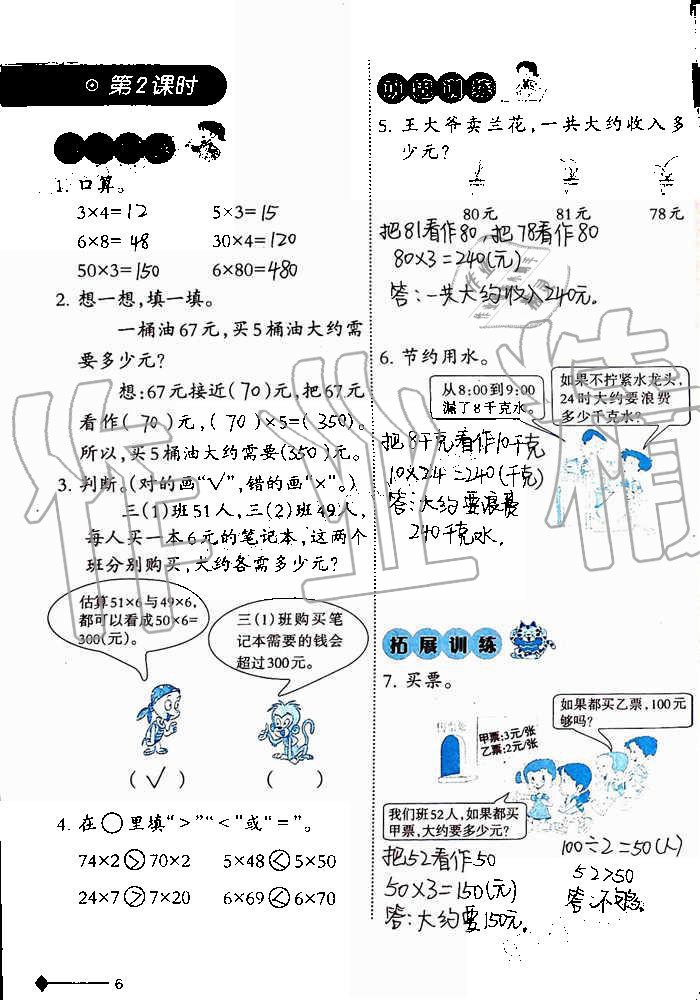 第2课时
1. 口算。
3×4=12 5×3=15
6×8=48 30×4=120
50×3=150 6×80=480
2. 想一想,填一填。
一桶油67元,买5桶油大约需
要多少元?
想:67元接近(70)元,把67元
看作(70)元,(70)×5=(350)。
所以,买5桶油大约需要(350)元。
3. 判断。(对的画“√”,错的画“×”。)
三(1)班51人,三(2)班49人,
每人买一本6元的笔记本,这两个
班分别购买,大约各需多少元?
估算51×6与49×6,
都可以看成50×6=
300(元)。
三(1)班购买笔
记本需要的钱会
超过300元。
(√) ( )
4. 在○里填“>”“<”或“=”。
74×2>70×2 5×48<5×50
24×7>7×20 6×69<6×70
6
巩固训练
5. 王大爷卖兰花,一共大约收入多
少元?
80元 81元 78元
把81看作80,把78看作80
80×3=240(元)
答:一共大约收入240元。
6. 节约用水。
从8:00到9:00
漏了8千克水。
如果不拧紧水龙头,
24时大约要浪费
多少千克水?
把8千克看作10千克
10×24=240(千克)
答:大约要浪费
240千克水。
拓展训练
7. 买票。
甲票:3元/张
乙票:2元/张
如果都买乙票,100元
够吗?
我们班52人,如果都买
甲票,大约要多少元?
把52看作50
50×3=150(元)
答:大约要150元.
100÷2=50(人)
52>50
答:不够。
作业精